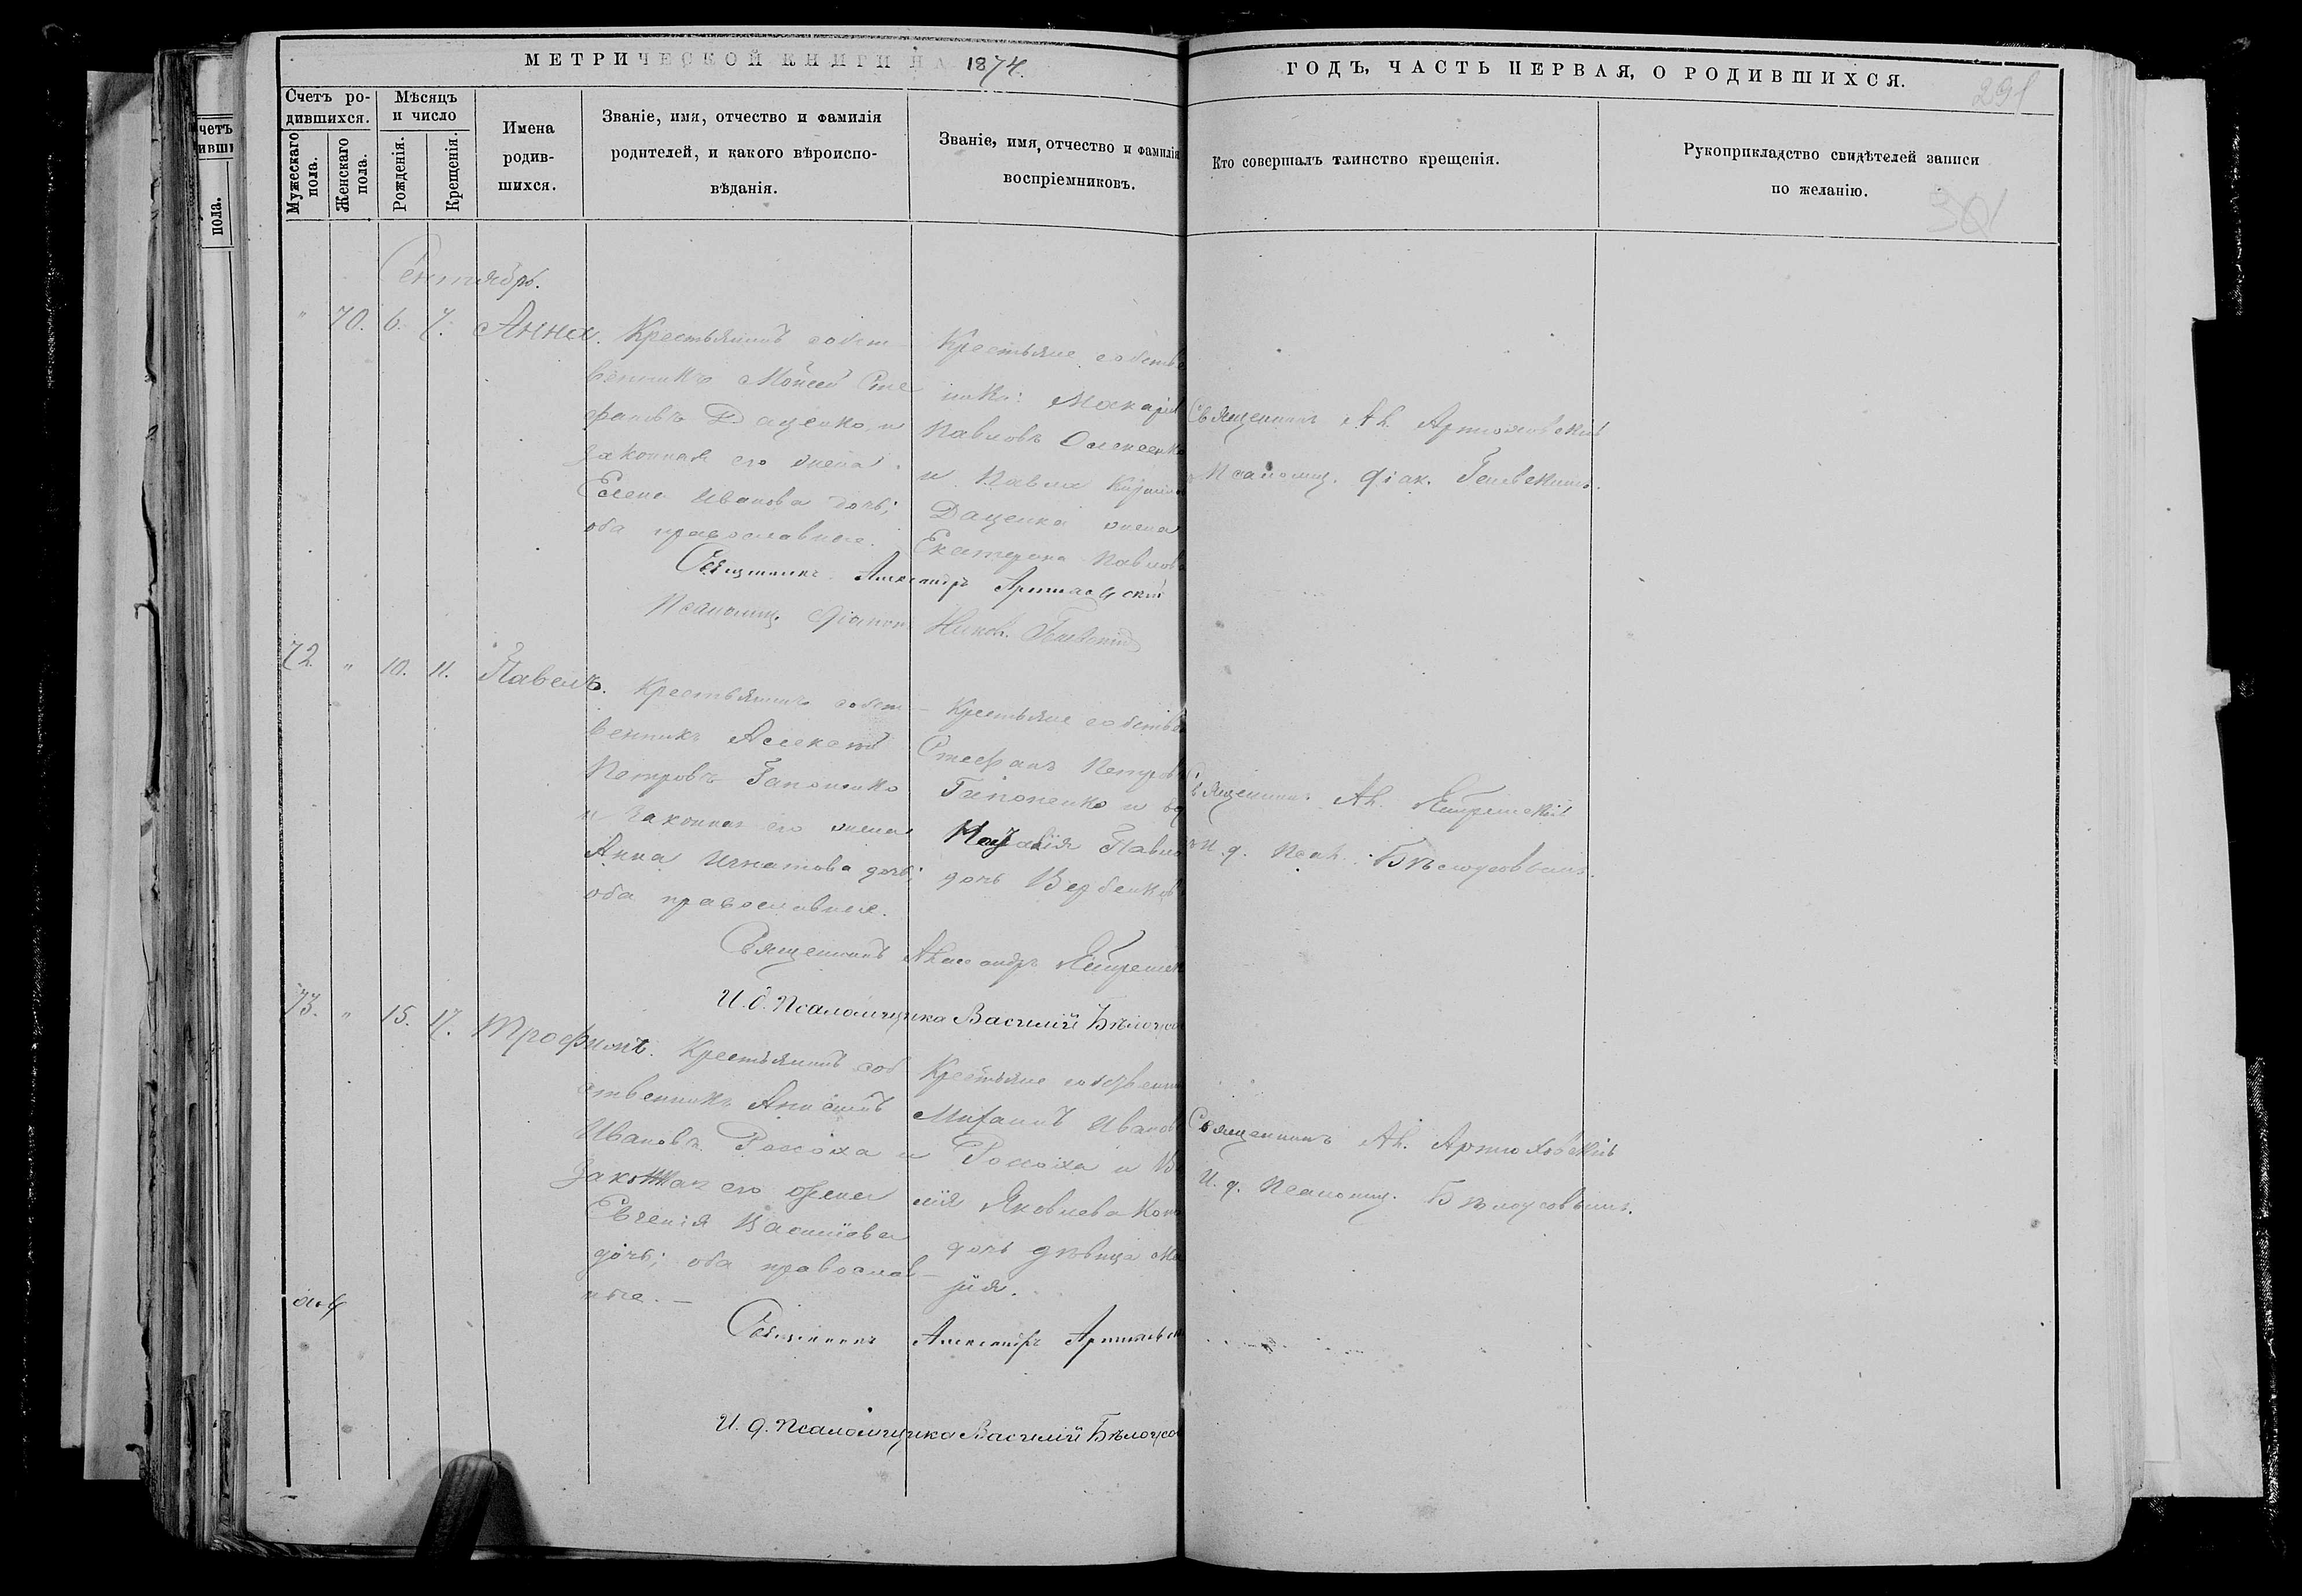 МЕТРИЧЕСКОЙ КНИГИ НА 1874.
ГОДЪ, ЧАСТЬ ПЕРВАЯ, О РОДИВШИХСЯ.
291
301
Счетъ ро-
дившихся.
Мужескаго пола.
Женскаго пола.
Мѣсяцъ
и число
Рожденія.
Крещенія.
Имена
родив-
шихся.
Званіе, имя, отчество и фамилія
родителей, и какого вѣроиспо-
вѣданія.
Званіе, имя, отчество и фамилія
воспріемниковъ.
Кто совершалъ таинство крещенія.
Рукоприкладство свидѣтелей записи
по желанію.
четъ
ивши
пола.
Сентябрь.
" 70. 6. 7. Анна.
Крестьянинъ собст-
венникъ Мойсей Сте
фановъ Даценко и
законная его жена
Елена Иванова дочь;
оба православные.
Крестьяне собстве
ники: Макарій
Павловъ
и Павла
Даценка жена
Екатерина Павлова
Священникъ Ал.
Псаломщ. діак.
Священникъ Александръ
Псаломщ. Діаконъ Никол.
72 " 10. 11. Павелъ.
Крестьянинъ собст-
венникъ Алексѣй
Петровъ Гапоненко
и законная его жена
Анна Игнатова дочь;
оба православные.
Крестьяне собстве
Стефанъ Петровъ
Гапоненко и
Наталія Павло
дочь Вербенков
Священникъ Ал.
И. д. Псал. Бѣлоусовымъ.
Священникъ Александръ
И. д. Псаломщика Василій Бѣлоусо
73. " 15. 17. Трофимъ.
Крестьянинъ соб
ственникъ
Ивановъ Рохоха и
законная его жена
Евгенія Василіева
дочь; оба православ-
ные. —
Крестьяне собствен
Михаилъ Иванов
Рохоха и
Яковлева
дочь дѣвица Ма
рія.
Священникъ Ал. Артюховскій
И. д. Псаломщ. Бѣлоусовымъ.
Священникъ Александръ
И. д. Псаломщика Василій Бѣлоусо